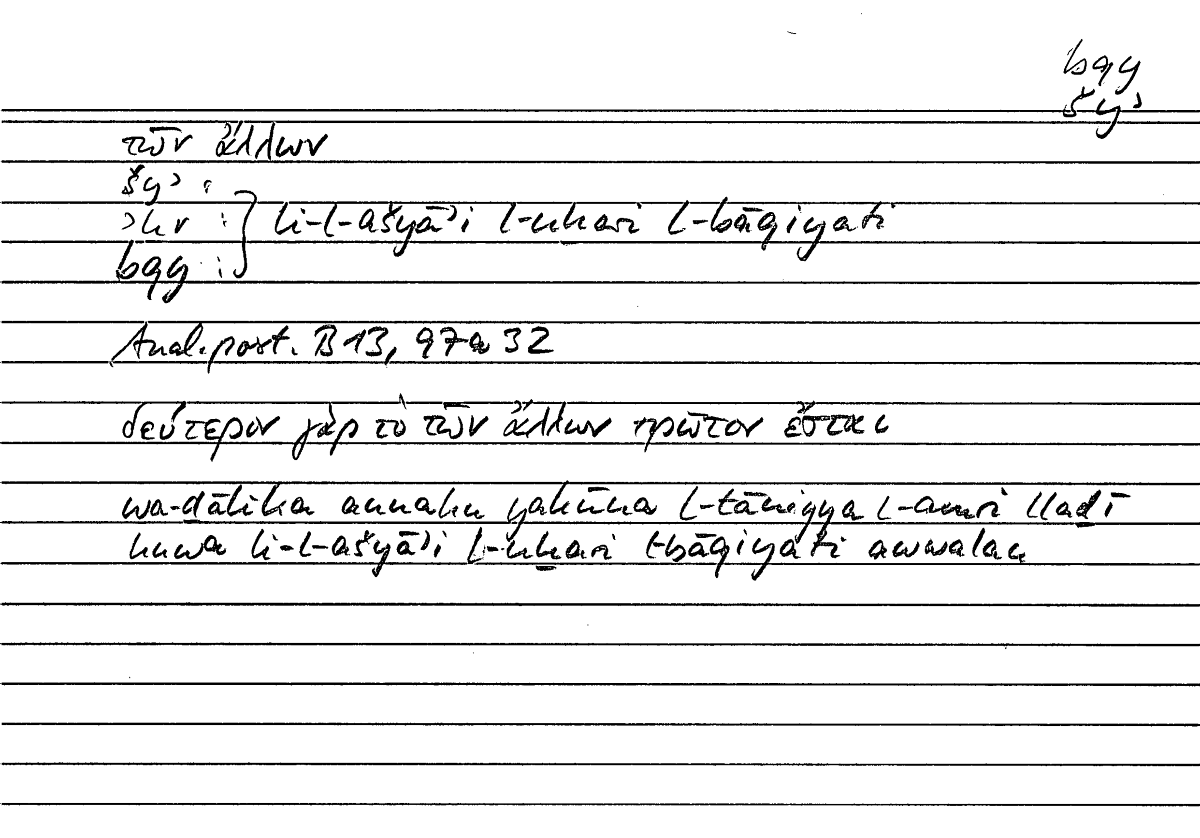 bqy
šyʾ
τῶν ἄλλων
šyʾ :
ʾḫr : } li-l-ašyāʾi l-uḫari l-bāqiyati
bqy :
Anal. post. B 13, 97a 32
δεύτερον γὰρ τὸ τῶν ἄλλων πρῶτον ἔσται
wa-ḏālika annahu yakūna l-tāniyya l-amri llaḏī
huwa li-l-ašyāʾi l-uḫari l-bāqiyati awwalan